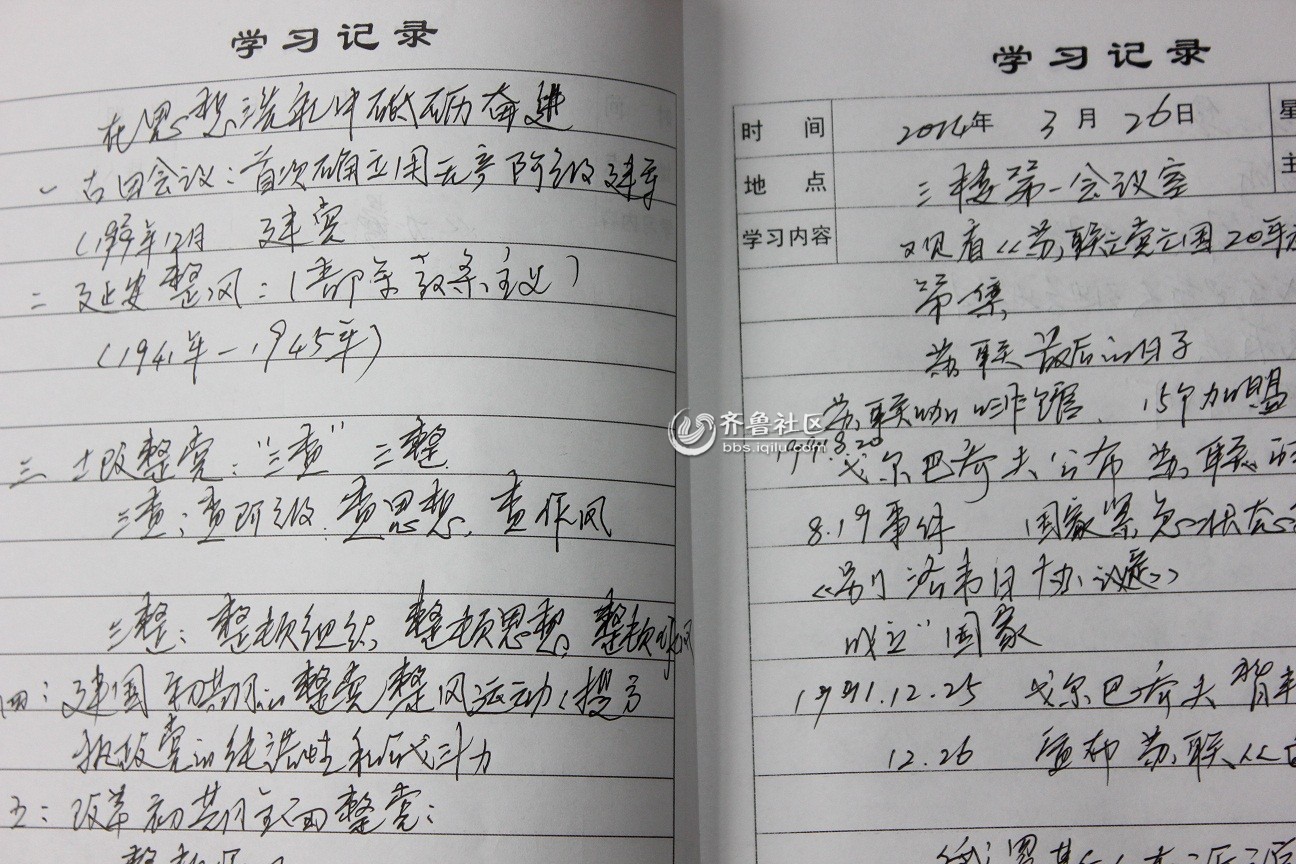 学习记录
在思想洗礼中砥砺奋进
一 古田会议：首次确立用无产阶级建军
(1929年12月 建党
二 延安整风：(部分 教条主义)
(1941年—1945年)
三 土改整党：“三查”三整
三查：查阶级、查思想、查作风
三整：整顿组织 整顿思想 整顿作风
四：建国初期的整党整风运动(提高
执政党的纯洁性和战斗力
五：改革初期全面整党：
学习记录
时间 2014年 3月 26日 星
地点 三楼第一会议室 主
学习内容 观看《苏联亡党亡国20年
苏联最后的日子
苏联 15个加盟
1991.8.20
戈尔巴乔夫公布苏联
8.19事件 国家紧急状态
《别洛韦日协议》
成立“国家
1991.12.25 戈尔巴乔夫
12.26 宣布苏联
齐鲁社区
bbs.iqilu.com